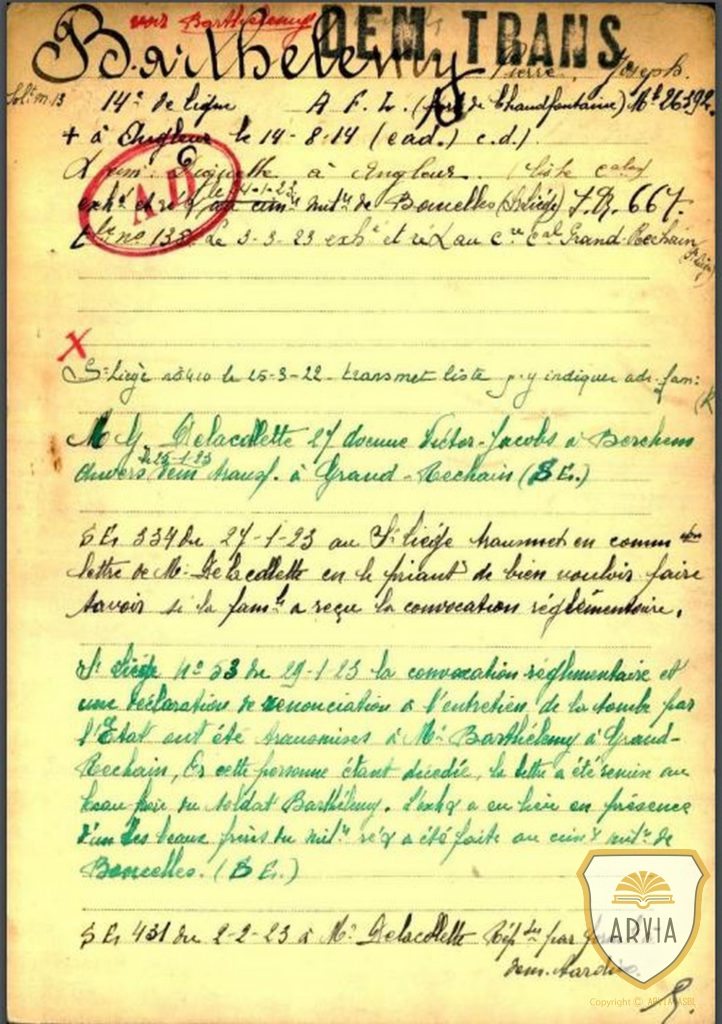 voir Barthélemy
DEM. TRANS
Barthélemy Pierre, Joseph.
Solt. m. 13
14e de ligne A F. L. (fort de Chaudfontaine) Mle 26392.
+ à Angleur le 14-8-14 (cad.) c.d.)
à Angleur. (liste
AD
le 4-1-23
exhé et ré milre de Boncelles (S. Liége) J.B. 667.
no 138. Le 3-3-23 exhé et ré au cre cal Grand-Rechain
X
St Liège le 25-3-22 transmet liste p. y indiquer adr. fam:
Mr G. Delacollette 27 avenue Victor-Jacobs à Berchem
Anvers le 25-1-23 dem transf. à Grand-Rechain (S Er.)
S Er 334 du 27-1-23 au St Liége transmet en commion
lettre de Mr Delacollette en le priant de bien vouloir faire
savoir si la famle a reçu la convocation réglémentaire.
St Liége no 53 du 29-1-23 la convocation réglmentaire et
une déclaration de renonciation à l'entretien de la tombe par
l'Etat ont été transmises à Mr Barthélemy à Grand-
Rechain, Or cette personne étant décédée, la lettre a été remise au
beau frère du soldat Barthélemy. L'exhon a eu lieu en présence
d'un des beaux frères du milre ré a été faite au cim milre de
Boncelles. (S Er.)
S Er 431 du 2-2-23 à Mr Delacollette Rép par
dem.
ARVIA
Copyright © ARVIA ASBL